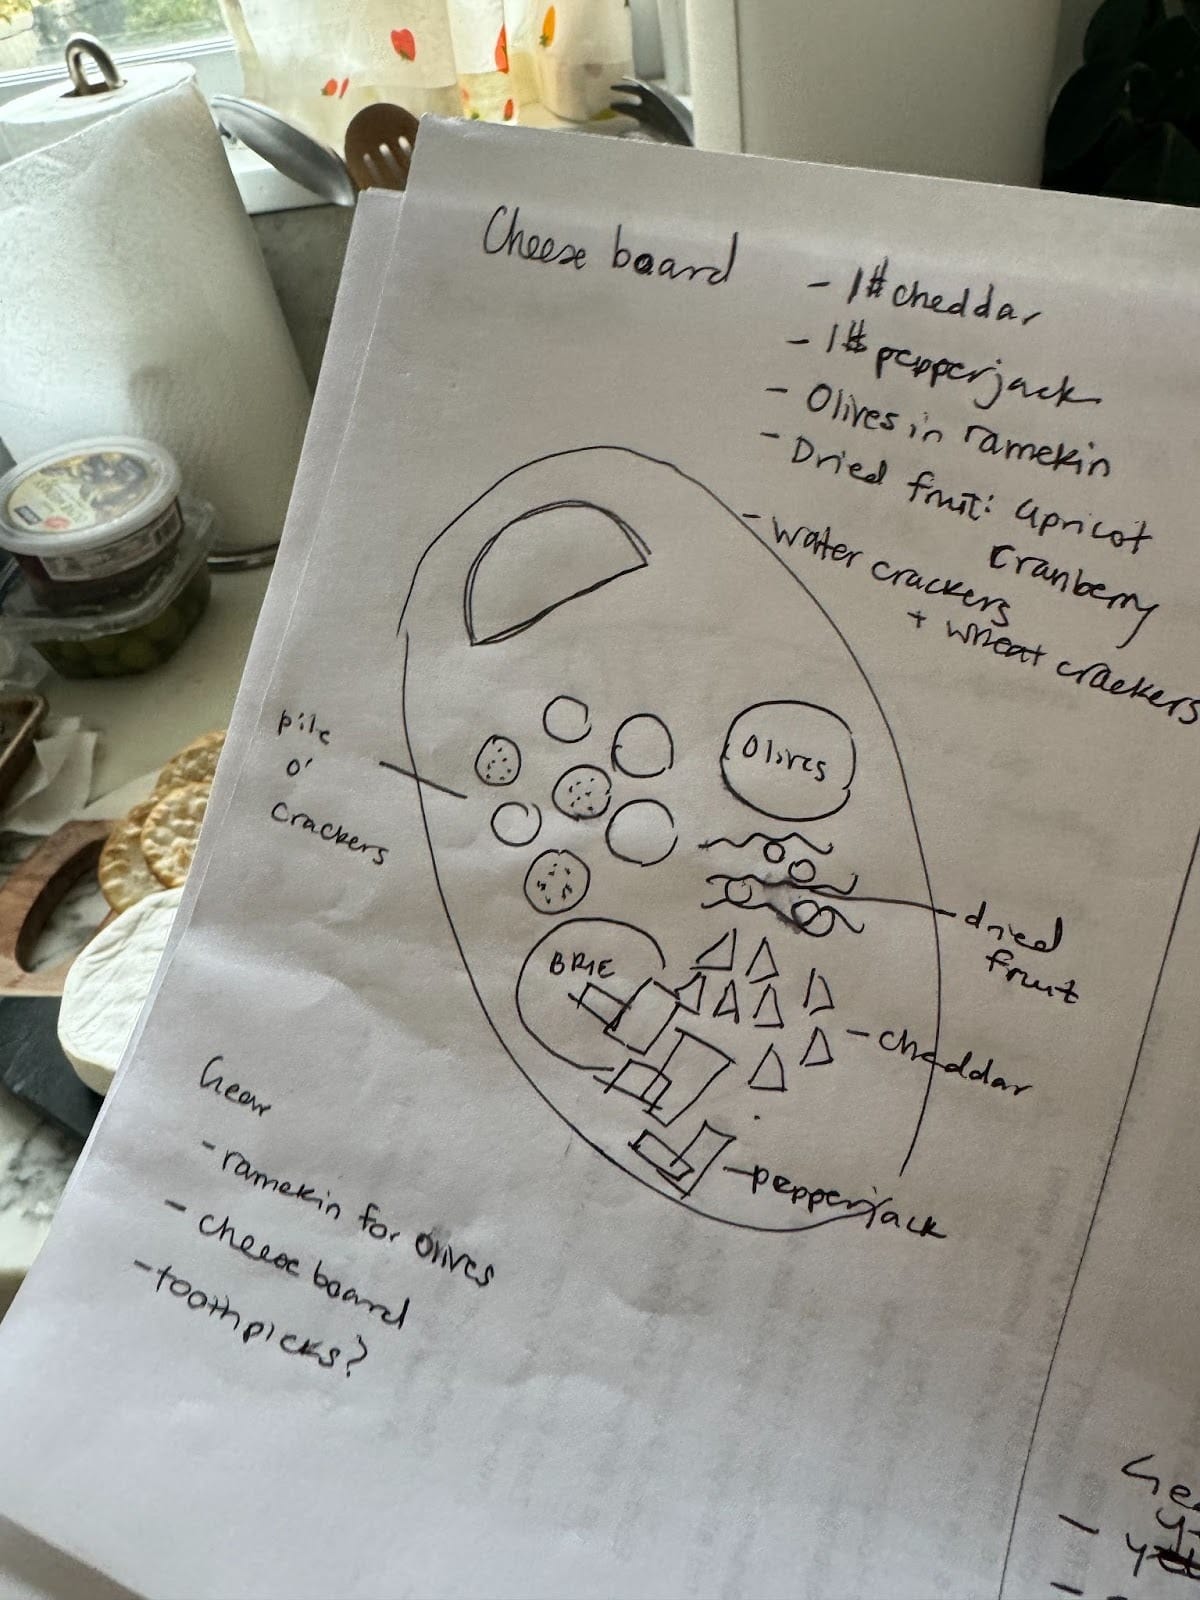 Cheese board
- 1# cheddar
- 1# pepperjack
- Olives in ramekin
- Dried fruit: apricot
cranberry
- water crackers
+ wheat crackers
pile
o'
crackers
Olives
dried
fruit
BRIE
- cheddar
- pepperjack
Gear
- ramekin for olives
- cheese board
- toothpicks?